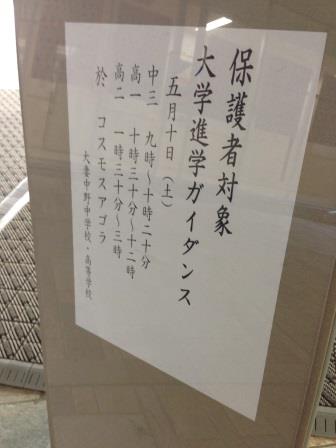 保護者対象
大学進学ガイダンス
五月十日(土)
中三 九時~十時二十分
高一 十時三十分~十二時
高二 一時三十分~三時
於 コスモスアゴラ
大妻中野中学校・高等学校